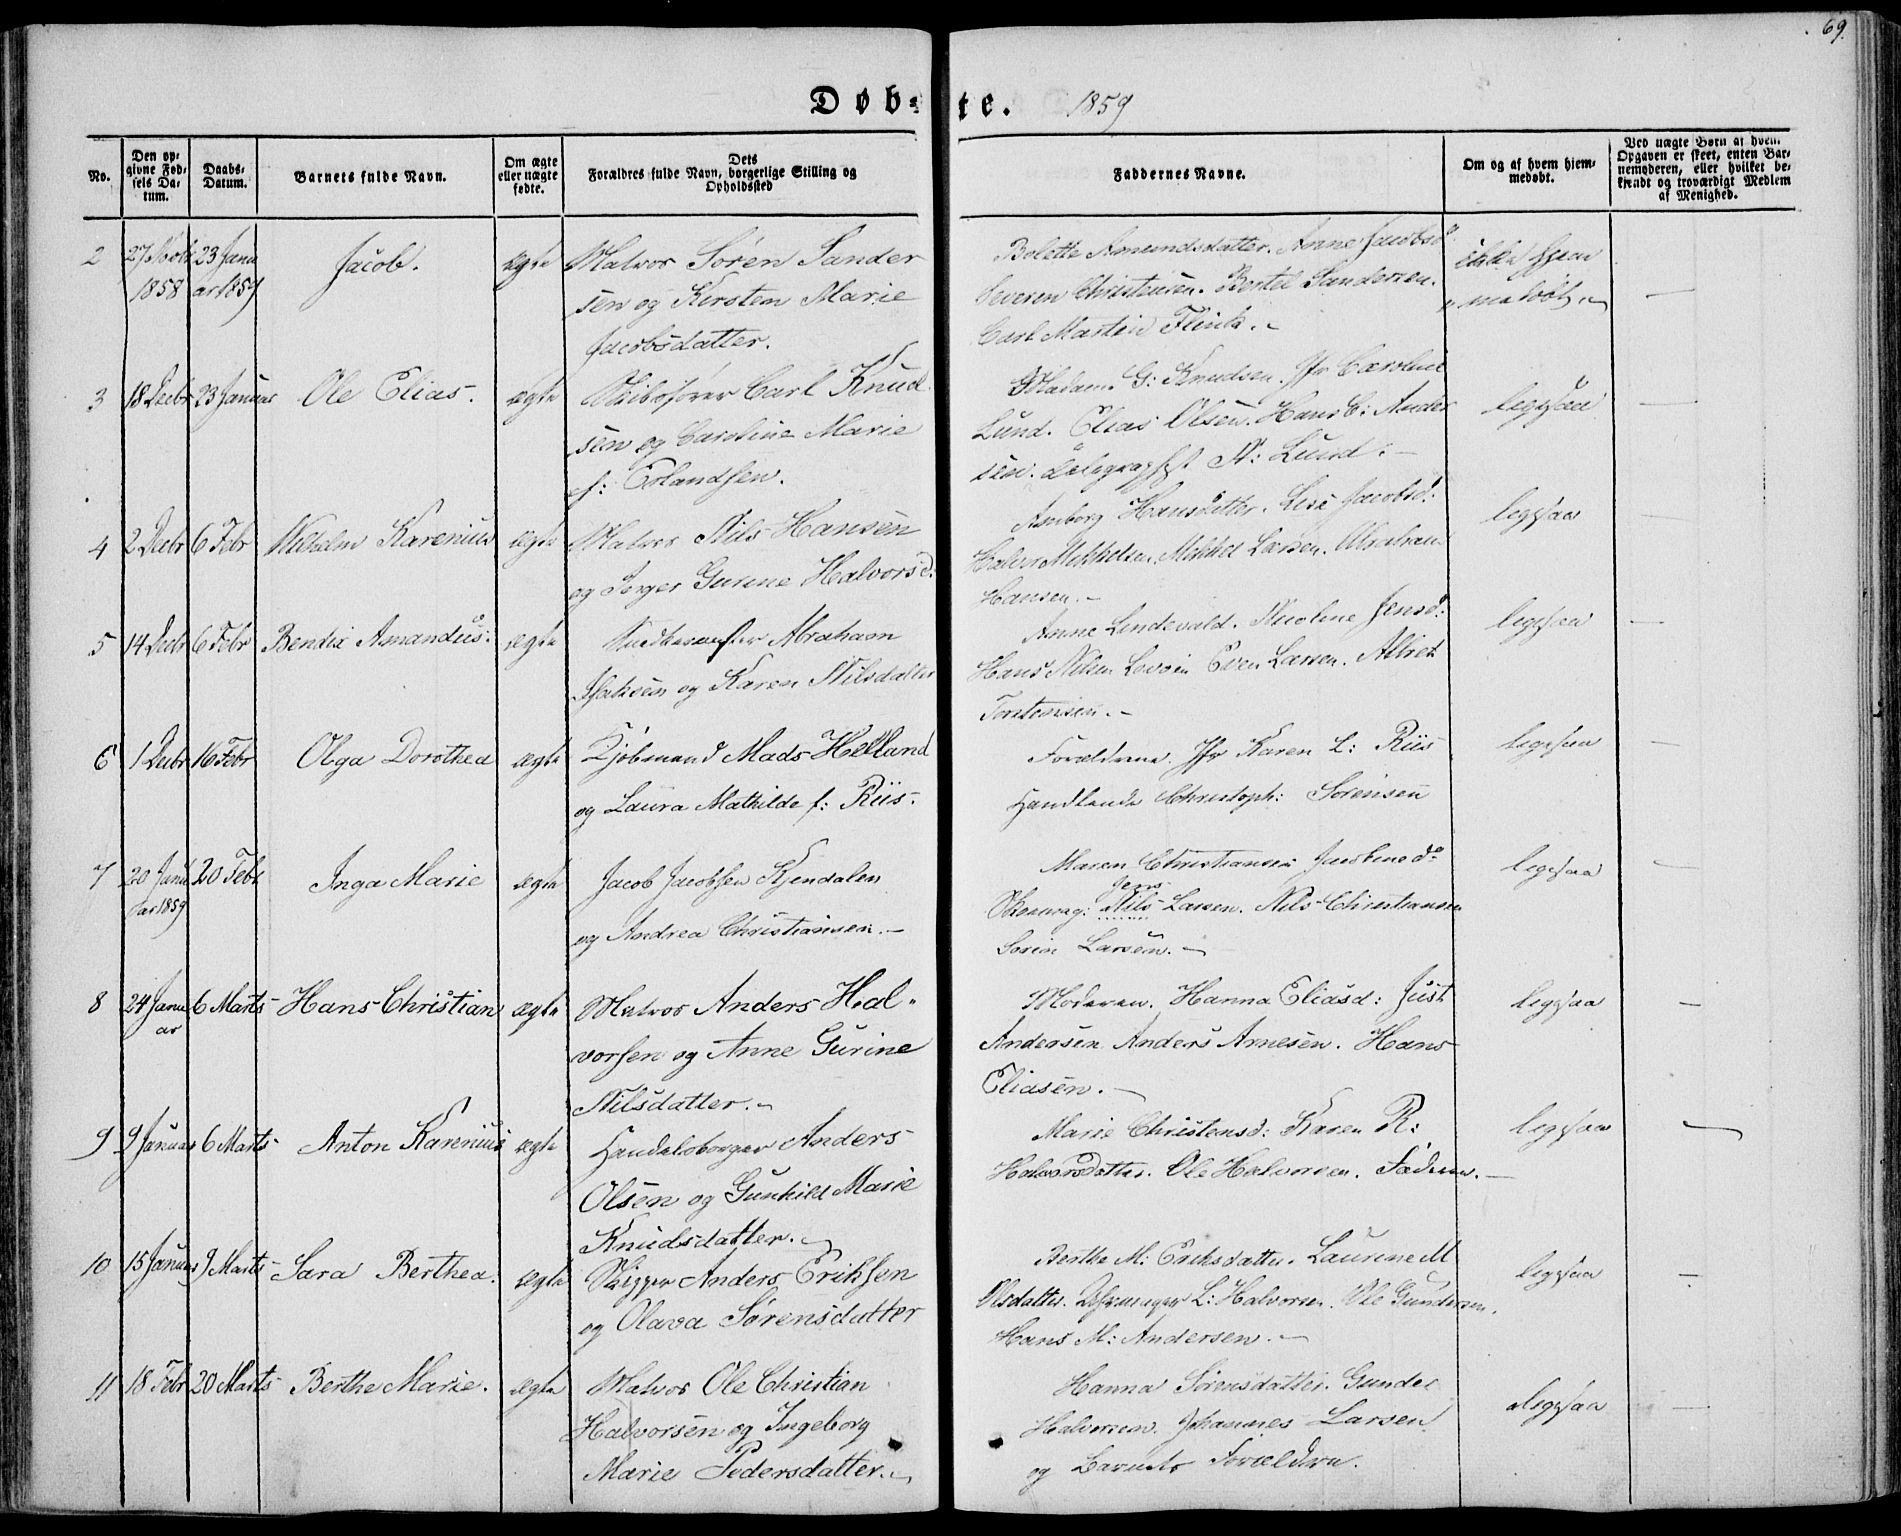 69.
Døbte. 1859
No.
Den opgivne Fødsels Datum.
Daabs-Datum.
Barnets fulde Navn.
Om ægte eller uægte fødte.
Dets Forældres fulde Navn, borgerlige Stilling og Opholdssted
Faddernes Navne.
Om og af hvem hjemmedøbt.
Ved uægte Børn at hvem Opgaven er skeet, enten Barnemoderen, eller hvilket bekjendt og troværdigt Medlem af Menighed.
2 23 Janu Jacob. ægte Matros Sören Sander Bolette Amundsdatter. Anne Jacobsd ikke hjem
1858 ar 1859 sen og Kirsten Marie Severin Christensen. Bertel Sandersen. medöbt. —
Jacobsdatter. Carl Martin Flink.
3 18 Decbr 23 Januar Ole Elias. ægte Carl Knud Madam G: Knudsen. Jfr Caroline ligesaa —
sen og Caroline Marie Lund. Elias Olsen. Hans C: Ander
f: Erlandsen. sen. N: Lund.
4 2 Decbr 6 Febr Wilhelm Karenius ægte Matros Nils Hansen Hansdatter. Lise Jacobsd: ligesaa
og Gurine Halvorsd: Mikkelsen. Mikkel Larsen. Abraham
Hansen.
5 14 Decbr 6 Febr Bendix Amandus. ægte Abraham Anne Lindevald. Nicoline Jensd: ligesaa —
Isaksen og Karen Nilsdatter Hans Nilsen Even Larsen.
6 1 Decbr 16 Febr Olga Dorothea ægte Kjöbmand Mads Helland Forældrene. Jfr Karen L: Riis ligesaa —
og Laura Mathilde f: Riis. Handlende Christoph: Sörensen
7 20 Janu 20 Febr Inga Marie ægte Jacob Jacobsen Kjendalen Maren Christiansen ligesaa —
ar 1859 Jens
og Andrea Christiansen. Nils Larsen. Nils Christiansen
Sörin Larsen.
8 24 Janu 6 Marts Hans Christian ægte Matros Anders Hal- Moderen. Hanna Eliasd: Just ligesaa —
ar vorsen og Anne Gurine Andersen. Anders Arnesen. Hans
Nilsdatter. Eliasen.
9 9 Januar 6 Marts Anton Karenius ægte Handelsborger Anders Marie Christensd: Karen R: ligesaa —
Olsen og Gunhild Marie Halvorsdatter. Ole Halvorsen. Faderen.
Knudsdatter.
10 15 Januar 9 Marts Sara Berthea. ægte Skipper Anders Eriksen Berthe M: Eriksdatter. Laurine M ligesaa —
og Olava Sörensdatter Olsdatter. L: Halvorsen. Ole Gundersen.
Hans M: Andersen.
11 18 Febr 20 Marts Berthe Marie. ægte Matros Ole Christian Hanna Sörensdatter. Gunder ligesaa —
Halvorsen og Ingeborg Halvorsen. Johannes Larsen
Marie Pedersdatter. og Barnets Forældre.